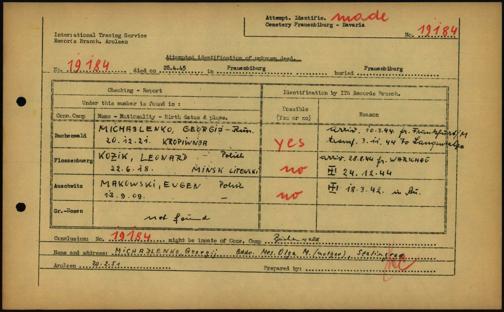 Attempt. Identific. made
International Tracing Service
Records Branch, Arolsen
Cemetery Frauenbiburg - Bavaria
No. 19184
Attempted identification of unknown dead.
No. 19184 died on 28.4.45 in Frauenbiburg buried Frauenbiburg
Checking - Report
Identification by ITS Records Branch.
Under this number is found in:
Possible
(Yes or No)
Reason
Conc. Camp
Name - Nationality - Birth dates & place.
Buchenwald
MICHAJLENKO, GEORGIJ - Russ.
20.12.21. KROPIWNJA
yes
arriv. 10.3.44 fr. Frankfurt/M
transf. 3.11.44 to Langensalza
Flossenburg
KOZIK, LEONARD - Polish
22.6.18. MINSK LITEWSKI
no
arriv. 28.8.44 fr. WARSCHAU
24.12.44
Auschwitz
MAKOWSKI, EUGEN Polish
13.9.09. -
no
18.3.42. in Au.
Gr.-Rosen
not found
Conclusion: No. 19184 might be inmate of Conc. Camp
Name and address: MICHAJLENKO, Georgij Olga M. (mother), Stalingrad
Arolsen 20.2.51 Prepared by: